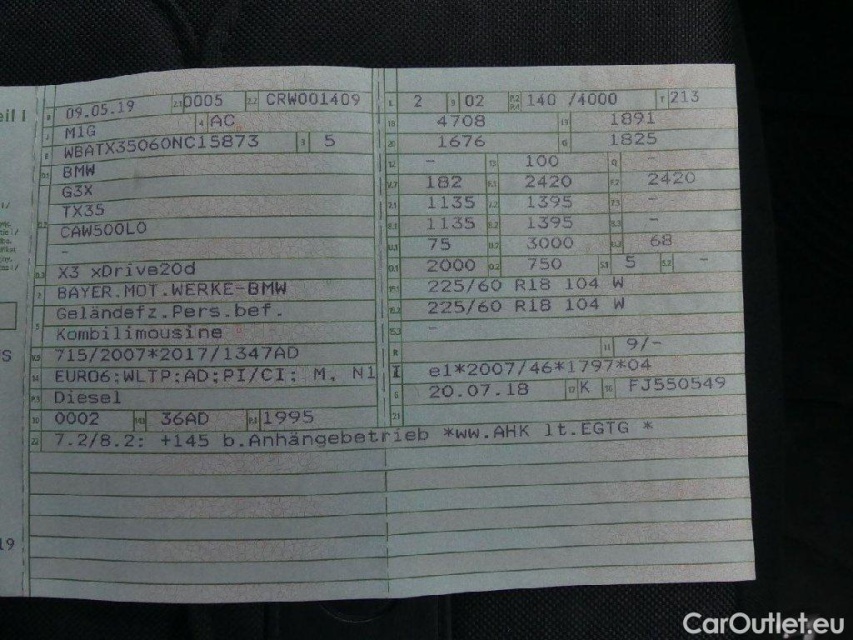 eil I
09.05.19 2.1 0005 2.2 CRW001409
M1G 4 AC
WBATX35060NC15873 3 5
BMW
G3X
TX35
CAW500L0
-
X3 xDrive20d
BAYER.MOT.WERKE-BMW
Geländefz.Pers.bef.
Kombilimousine
715/2007*2017/1347AD
EURO6;WLTP;AD;PI/CI; M, N1
Diesel
0002 36AD 1995
7.2/8.2: +145 b.Anhängebetrieb *ww.AHK lt.EGTG *
2 9 02 P.2 P.4 140 /4000 T 213
4708 1891
1676 1825
- 100 -
182 2420 2420
1135 1395 -
1135 1395 -
75 3000 68
2000 750 5 -
225/60 R18 104 W
225/60 R18 104 W
-
11 9/-
e1*2007/46*1797*04
20.07.18 K FJ550549
S
19
CarOutlet.eu